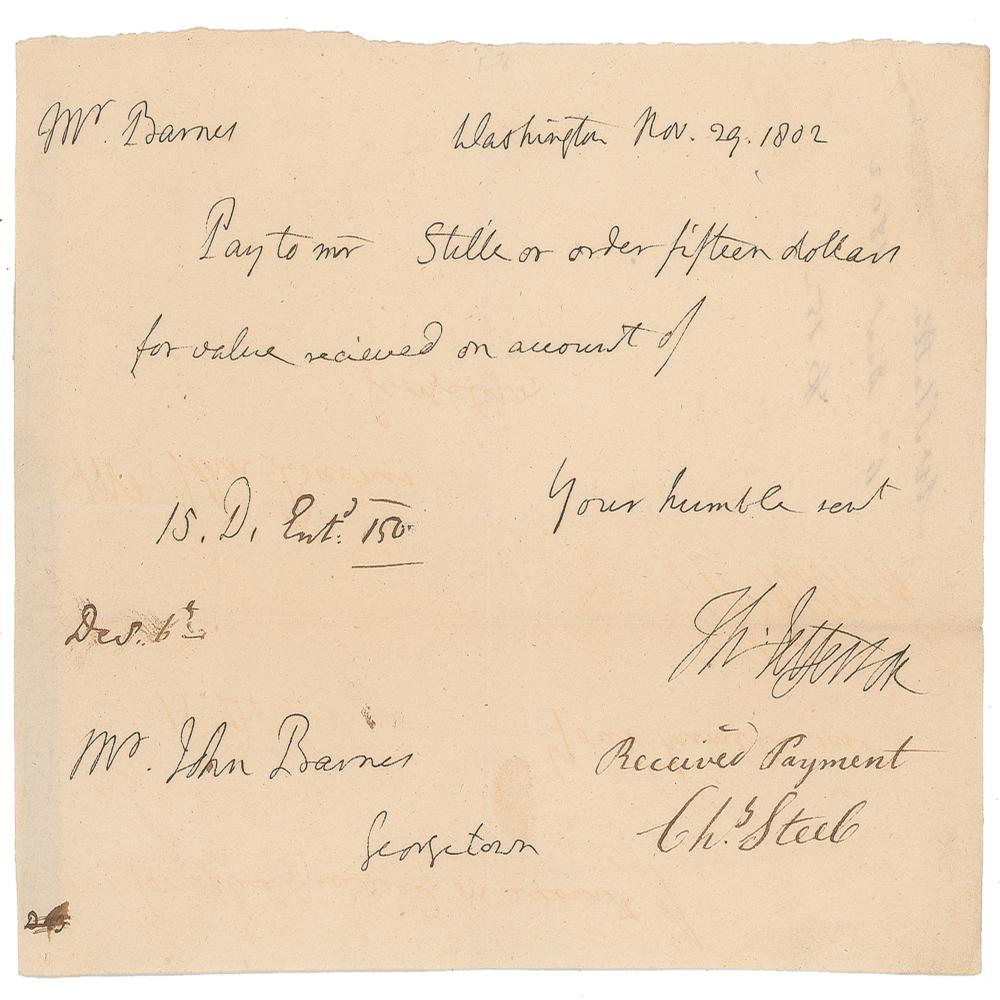 Mr. Barnes Washington Nov. 29. 1802
Pay to mr Stille or order fifteen dollars
for value recieved on account of
Your humble servt
15. D. Entd. 150
Th: Jefferson
Decr. 6th
Mr. John Barnes
Georgetown
Received Payment
Chs. Steel